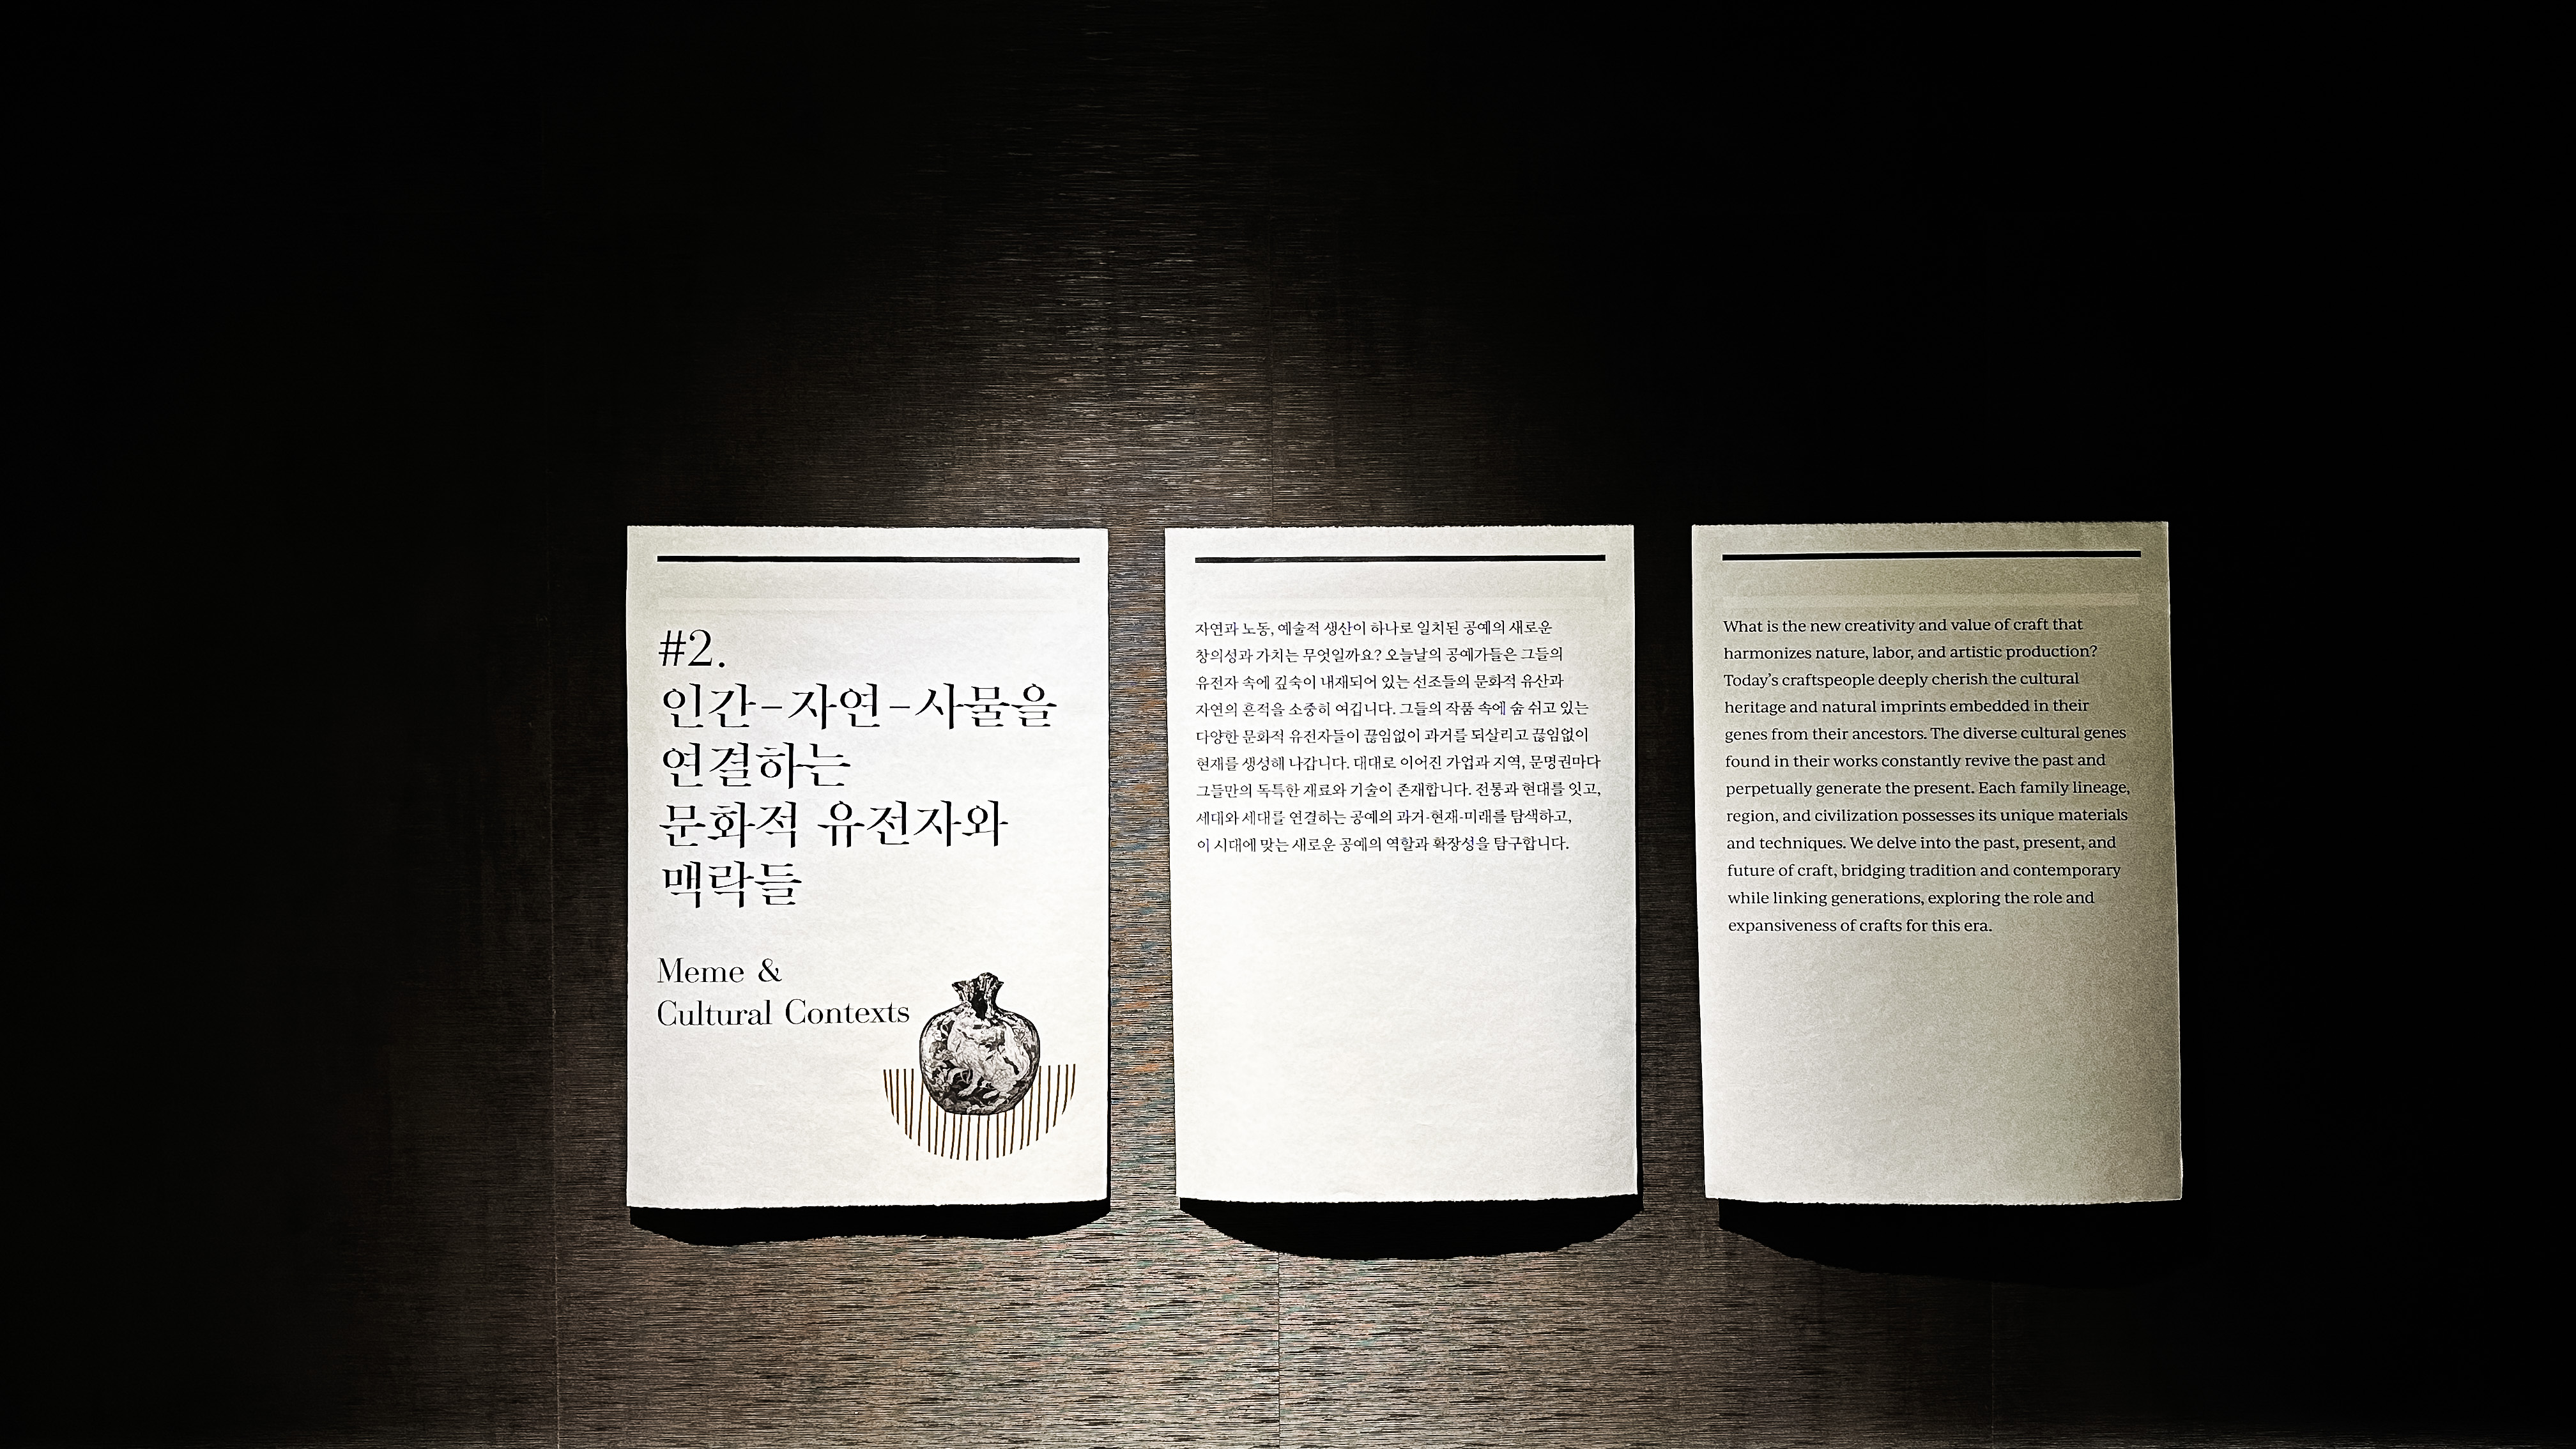 #2.
인간-자연-사물을
연결하는
문화적 유전자와
맥락들
Meme &
Cultural Contexts
자연과 노동, 예술적 생산이 하나로 일치된 공예의 새로운
창의성과 가치는 무엇일까요? 오늘날의 공예가들은 그들의
유전자 속에 깊숙이 내재되어 있는 선조들의 문화적 유산과
자연의 흔적을 소중히 여깁니다. 그들의 작품 속에 숨 쉬고 있는
다양한 문화적 유전자들이 끊임없이 과거를 되살리고 끊임없이
현재를 생성해 나갑니다. 대대로 이어진 가업과 지역, 문명권마다
그들만의 독특한 재료와 기술이 존재합니다. 전통과 현대를 잇고,
세대와 세대를 연결하는 공예의 과거-현재-미래를 탐색하고,
이 시대에 맞는 새로운 공예의 역할과 확장성을 탐구합니다.
What is the new creativity and value of craft that
harmonizes nature, labor, and artistic production?
Today's craftspeople deeply cherish the cultural
heritage and natural imprints embedded in their
genes from their ancestors. The diverse cultural genes
found in their works constantly revive the past and
perpetually generate the present. Each family lineage,
region, and civilization possesses its unique materials
and techniques. We delve into the past, present, and
future of craft, bridging tradition and contemporary
while linking generations, exploring the role and
expansiveness of crafts for this era.